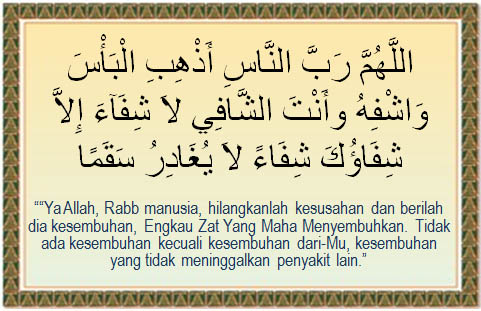 اللَّهُمَّ رَبَّ النَّاسِ أَذْهِبِ الْبَأْسَ
وَاشْفِهُ وأَنْتَ الشَّافِي لاَ شِفَآءَ إِلاَّ
شِفَاؤُكَ شِفَاءً لاَ يُغَادِرُ سَقَمًا
““Ya Allah, Rabb manusia, hilangkanlah kesusahan dan berilah
dia kesembuhan, Engkau Zat Yang Maha Menyembuhkan. Tidak
ada kesembuhan kecuali kesembuhan dari-Mu, kesembuhan
yang tidak meninggalkan penyakit lain.”